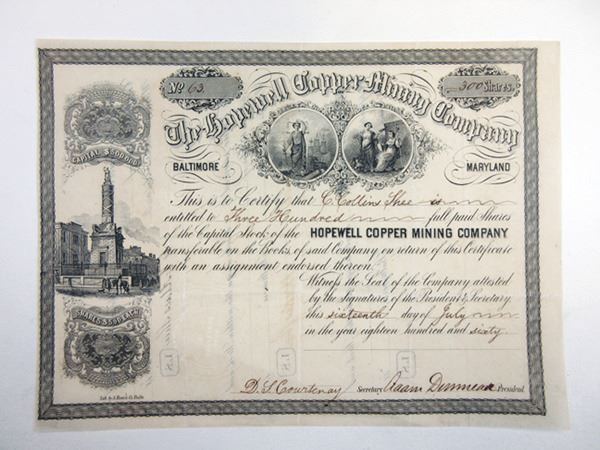 No 63.
300 Shares.
The Hopewell Copper Mining Company
BALTIMORE
MARYLAND
This is to Certify that C. Collins Shee is
entitled to Three Hundred full paid Shares
of the Capital Stock of the HOPEWELL COPPER MINING COMPANY
transferable on the Books of said Company on return of this Certificate
with an assignment endorsed thereon.
Witness the Seal of the Company attested
by the Signatures of the President & Secretary
this sixteenth day of July
in the year eighteen hundred and sixty.
D. S. Courtenay Secretary Adam President.
CAPITAL
SHARES EACH
L.S.
L.S.
Lith. by A. Hoen & Co. Balto.